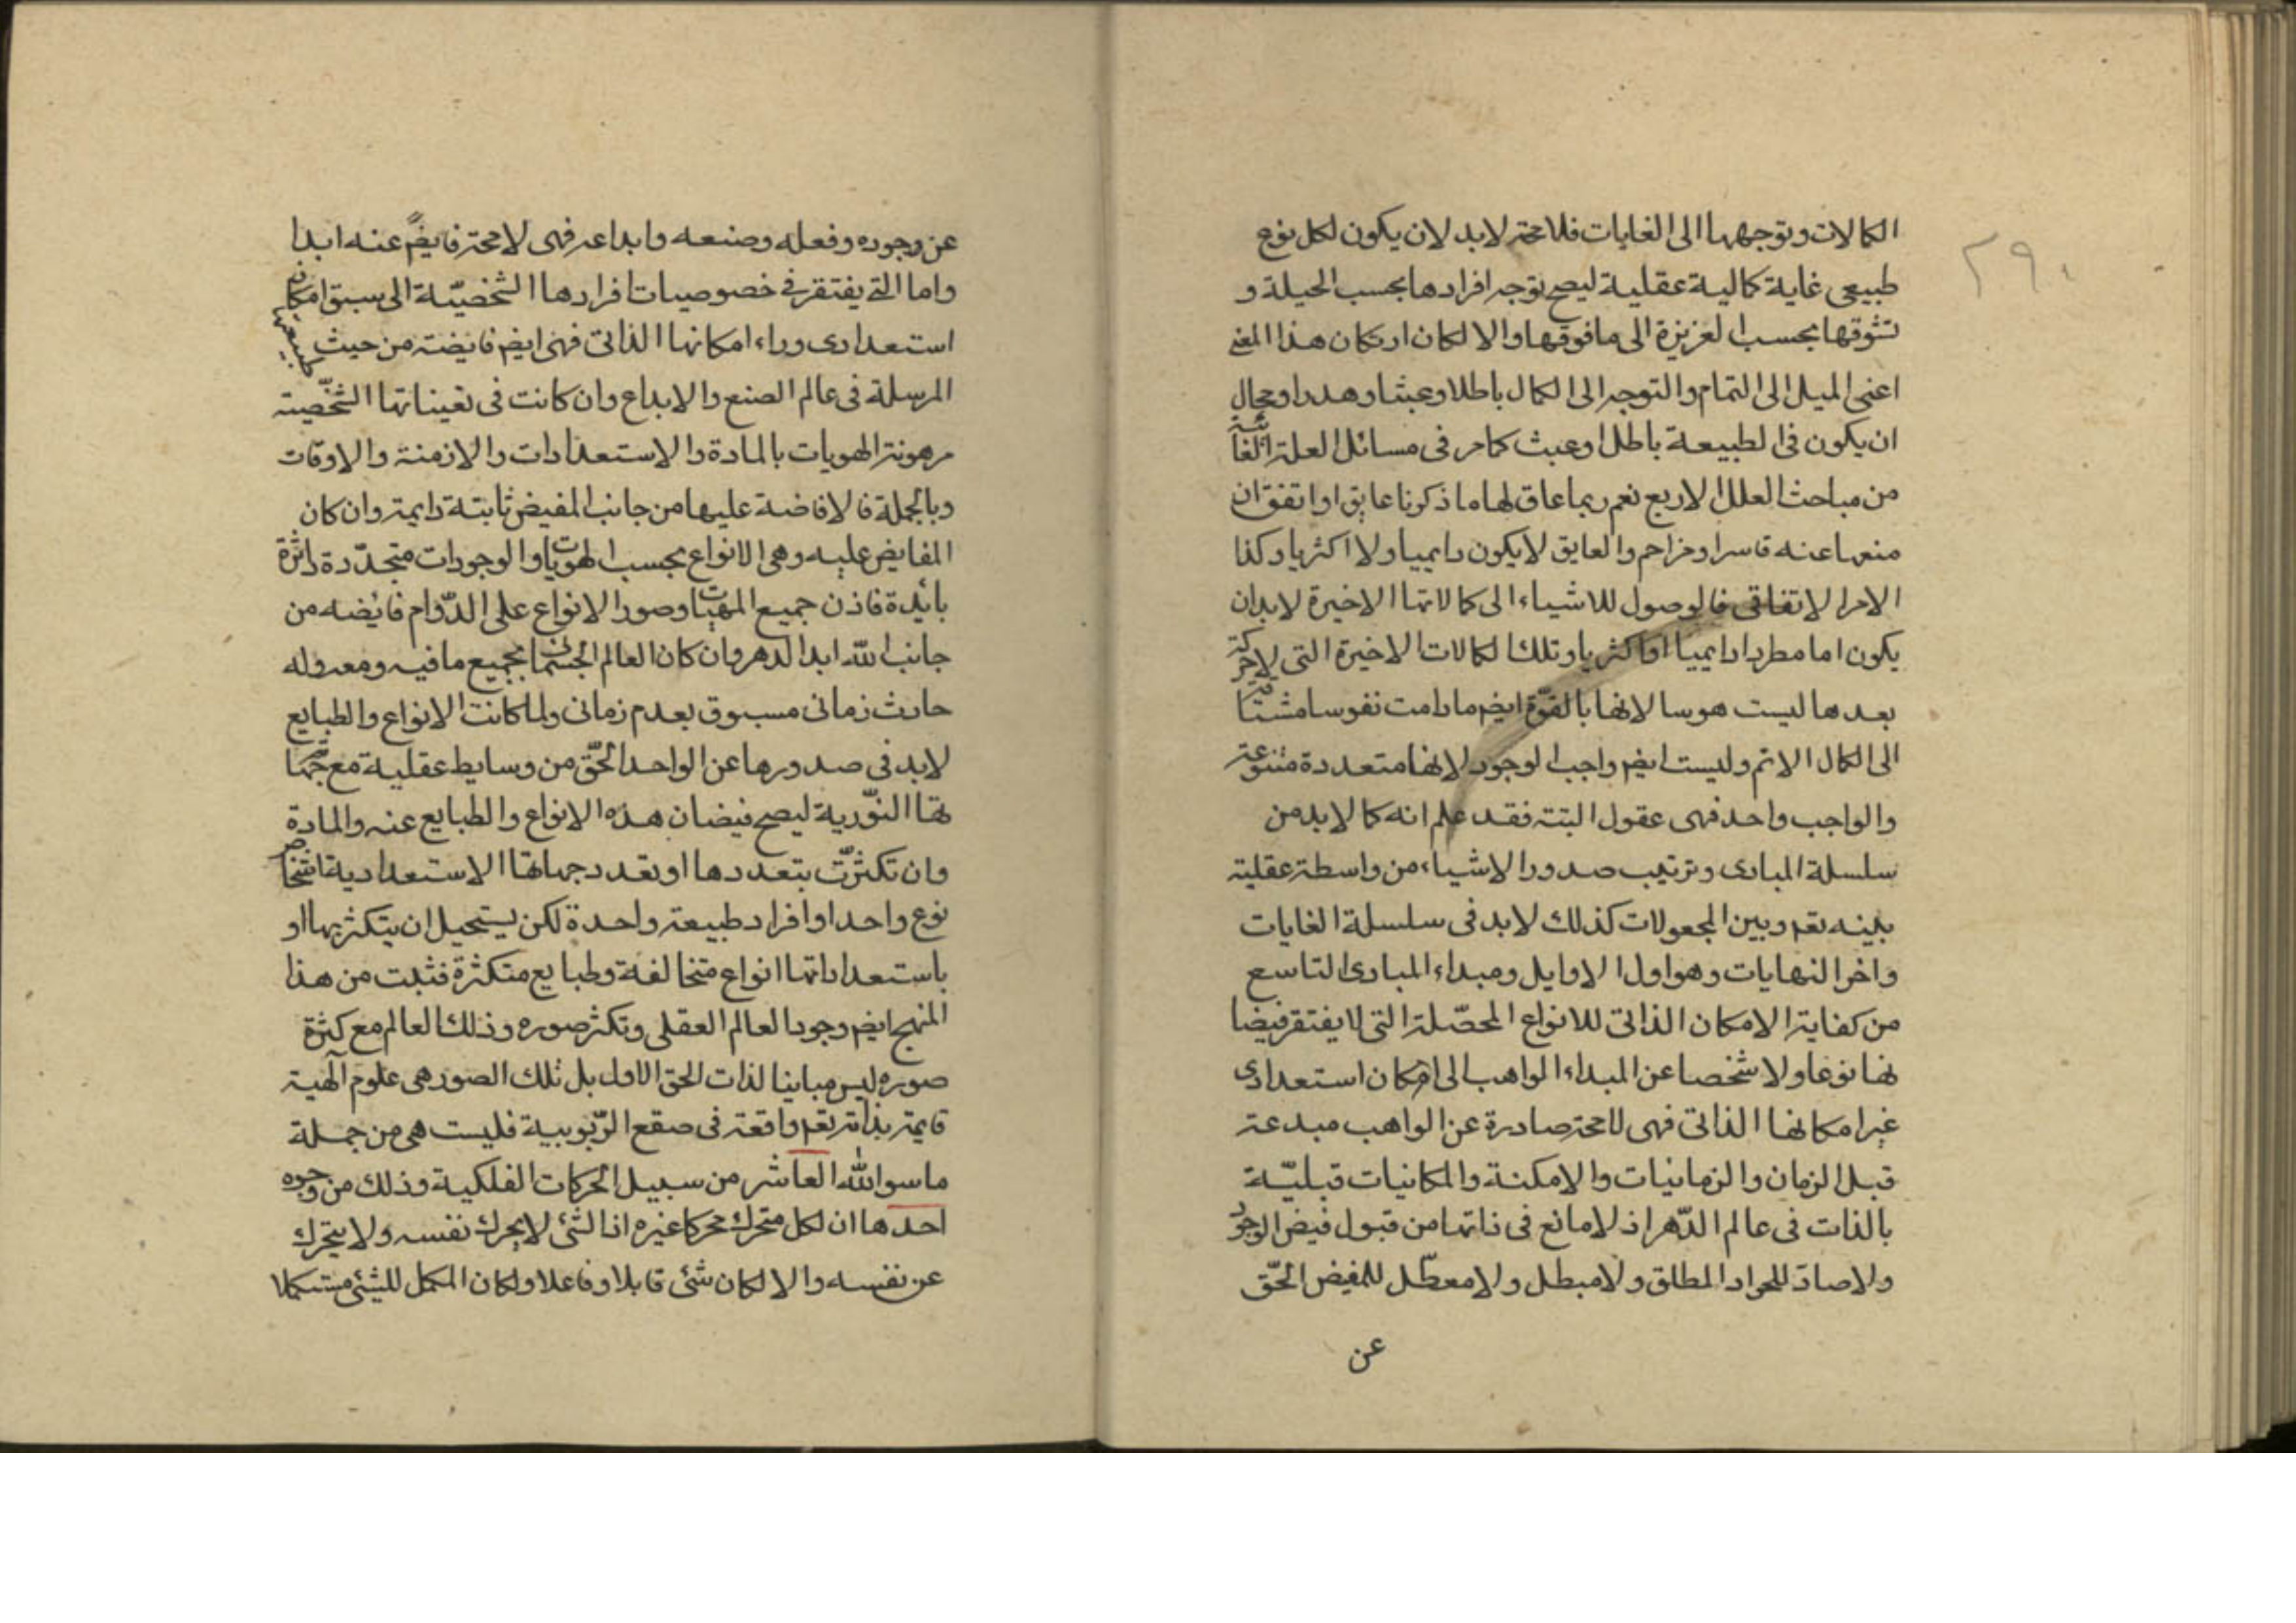 ٢٩٠
الكمالات وتوجهها الى الغايات فلا محة لابد لان يكون لكل نوع
طبيعى غاية كمالية عقلية ليصح توجه افرادها بحسب الجبلة و
تشوقها بحسب الغريزة الى ما فوقها والا لكان ارتكان هذا المعنى
اعنى الميل الى التمام والتوجه الى الكمال باطلا وعبثا وهدرا ومحال
ان يكون فى الطبيعة باطل او عبث كما مر فى مسائل العلة الغائية
من مباحث العلل الاربع نعم ربما عاق لها ما ذكرنا عايق او اتفق ان
منعها عنه قاسر او مزاحم والعايق لا يكون دايميا ولا اكثريا وكذا
الامر الاتفاقى فالوصول للاشياء الى كمالاتها الاخيرة لابد ان
يكون اما مطردا دايميا او اكثريا وتلك الكمالات الاخيرة التى لا حركة
بعدها ليست هوسا لانها بالقوّة ايضم ما دامت نفوسا مشتاقة
الى الكمال الاتم وليست ايضم واجب الوجود لانها متعددة متنوعة
والواجب واحد فهى عقول البتة فقد علم انه كما لابد من
سلسلة المبادى وترتيب صدور الاشياء من واسطة عقلية
بينه تعم وبين المجعولات كذلك لابد فى سلسلة الغايات
واخر النهايات وهو اول الاوايل ومبداء المبادى التاسع
من كفاية الامكان الذاتى للانواع المحصّلة التى لا يفتقر فيضا
نها نوعا ولا شخصا عن المبداء الواهب الى امكان استعدادى
غير امكانها الذاتى فهى لا محة صادرة عن الواهب مبدعة
قبل الزمان والزمانيات والامكنة والمكانيات قبليّة
بالذات فى عالم الدّهر اذ لا مانع فى ذاتها من قبول فيض الوجود
ولا صادّ للجواد المطلق ولا مبطل ولا معطّل للمفيض الحّق
عن
عن وجوده وفعله وصنعه وابداعه فهى لا محة فايضة عنه ابدا
واما التى يفتقر فى خصوصيات افرادها الشخصيّة الى سبق امكان
استعدادى وراء امكانها الذاتى فهى ايضم فايضة من حيث طبيعتها
المرسلة فى عالم الصنع والابداع وان كانت فى تعيناتها الشخّصية
مرهونة الهويات بالمادة والاستعدادات والازمنة والاوقات
وبالجملة فالافاضة عليها من جانب المفيض ثابتة دايمة وان كان
المفايض عليه وهى الانواع بحسب الهويات والوجودات متجدّدة داثرة
بائدة فاذن جميع المهيات وصور الانواع على الدّوام فائضه من
جانب الله ابد الدهر وان كان العالم الجسمانى بجميع ما فيه ومعه وله
حادث زمانى مسبوق بعدم زمانى ولما كانت الانواع والطبايع
لابد فى صدورها عن الواحد الحّق من وسايط عقلية مع جهات
تها النّورية ليصح فيضان هذه الانواع والطبايع عنه والمادة
وان تكثرّت بتعددها او تعدد جهاتها الاستعدادية اشخاص
نوع واحد او افراد طبيعة واحدة لكن يستحيل ان يتكثر بها او
باستعداداتها انواع متخالفة وطبايع متكثرة فثبت من هذا
المنهج ايضم وجود العالم العقلى وتكثر صوره وذلك العالم مع كثرة
صوره ليس مباينا لذات الحق الاول بل تلك الصور هى علوم الهية
قايمة بذاته تعم واقعة فى صقع الرّبوبية فليست هى من جملة
ما سوا الله العاشر من سبيل الحركات الفلكية وذلك من وجوه
احدها ان لكل متحرك محركا غيره اذ الشئ لا يحرك نفسه ولا يتحرك
عن نفسه والا لكان شئ قابلا وفاعلا ولكان المكمل للشئ مستكملا